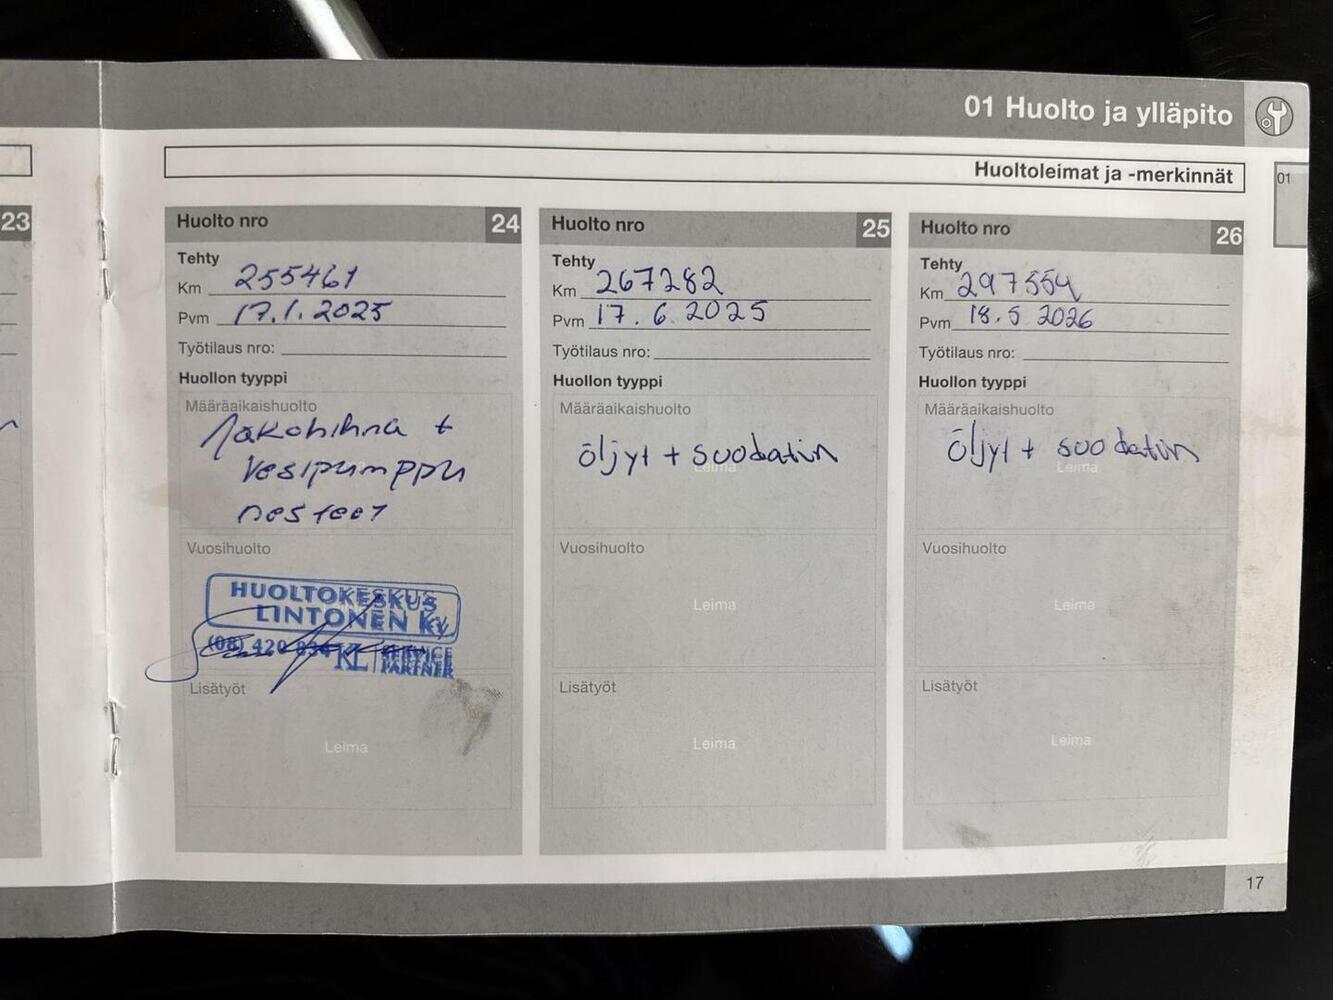 01 Huolto ja ylläpito
Huoltoleimat ja -merkinnät
01
23
Huolto nro 24
Tehty
Km 255461
Pvm 17.1.2025
Työtilaus nro:
Huollon tyyppi
Määräaikaishuolto
Jakohihna +
Vesipumppu
nesteet
Vuosihuolto
HUOLTOKESKUS
LINTONEN Ky
(08) 420 834
KL SERVICE
PARTNER
Lisätyöt
Leima
Huolto nro 25
Tehty
Km 267282
Pvm 17.6.2025
Työtilaus nro:
Huollon tyyppi
Määräaikaishuolto
öljyt + suodatin
Leima
Vuosihuolto
Leima
Lisätyöt
Leima
Huolto nro 26
Tehty
Km 297554
Pvm 18.5 2026
Työtilaus nro:
Huollon tyyppi
Määräaikaishuolto
öljyt + suodatin
Leima
Vuosihuolto
Leima
Lisätyöt
Leima
17